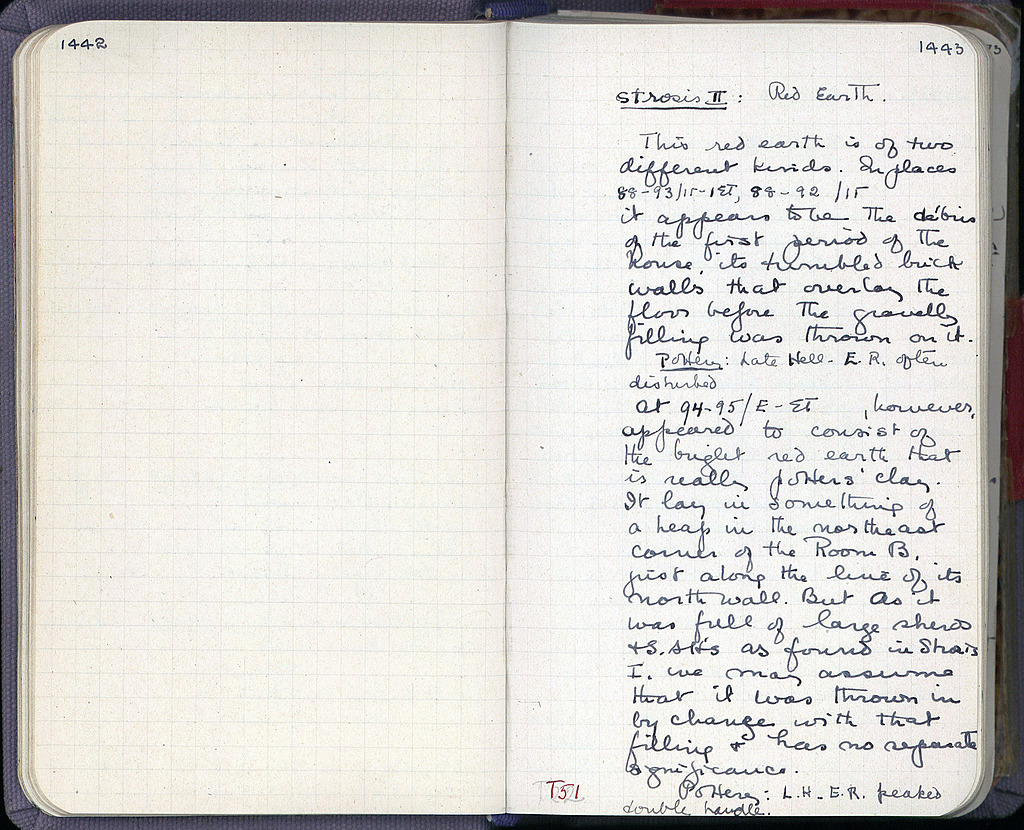 1442
1443
Strosis II : Red Earth.
This red earth is of two
different kinds. In places
88-93/IΓ-IΣΤ, 88-92 /IΓ
it appears to be the débris
of the first period of the
house, its tumbled brick
walls that overlay the
floor before the gravelly
filling was thrown on it.
Pottery: Late Hell - E.R. often
disturbed
At 94-95/E-ΣΤ , however,
appeared to consist of
the bright red earth that
is really potters' clay.
It lay in something of
a heap in the northeast
corner of the Room B,
just along the line of its
north wall. But as it
was full of large sherds
as found in Strosis
I, we may assume
that it was thrown in
by chance with that
filling & has no separate
significance.
Pottery: L.H - E.R. peaked
double handle.
T51